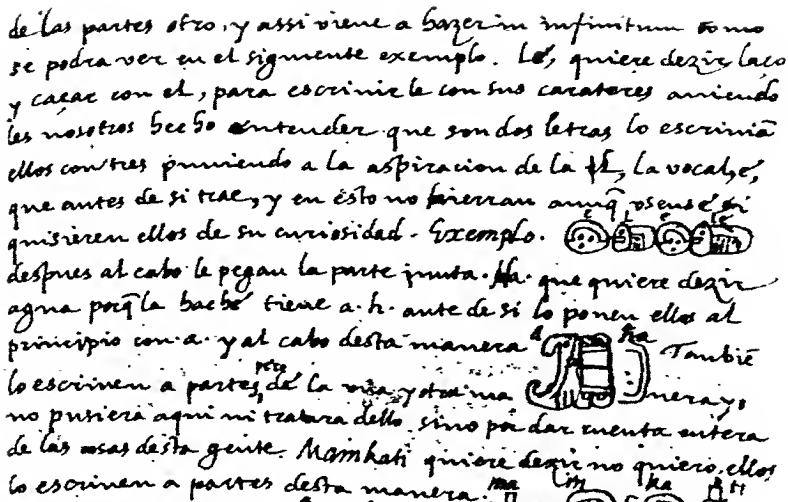 de las partes otro, y assi viene a hazer in infinitum como
se podra ver en el siguiente exemplo. Lé, quiere dezir laço
y caçar con el, para escrivirle con sus carateres aviendo
les nosotros hecho entender que son dos letras lo escrivian
ellos con tres puniendo a la aspiracion de la l, la vocal, é,
que antes de si trae, y en esto no hierran aunq̃ usense si
quisieren ellos de su curiosidad. Exemplo. e l e lé
despues al cabo le pegan la parte junta. Ha. que quiere dezir
agua porq̃ la haché tiene a. h. ante de si lo ponen ellos al
principio con a. y al cabo desta manera a ha Tambiẽ
lo escriven a partes, pero de la una y otra ma nera y,
no pusiera aqui ni tratara dello sino por dar cuenta entera
de las cosas desta gente. Mainkati quiere dezir no quiero, ellos
lo escriven a partes desta manera. ma i n ka ti